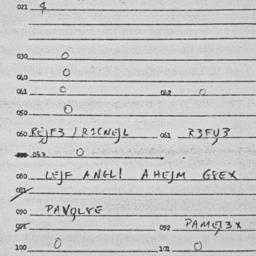 021 $
030 0
040 0
041 0 042 0
050 0
060 REJF3 / R2CNEJL 061 R3FY3
0
080 LEJF ANGL! AHEJM G8EX
090 PAVQL8E
092 PAMEJ3X
100 0 101 0